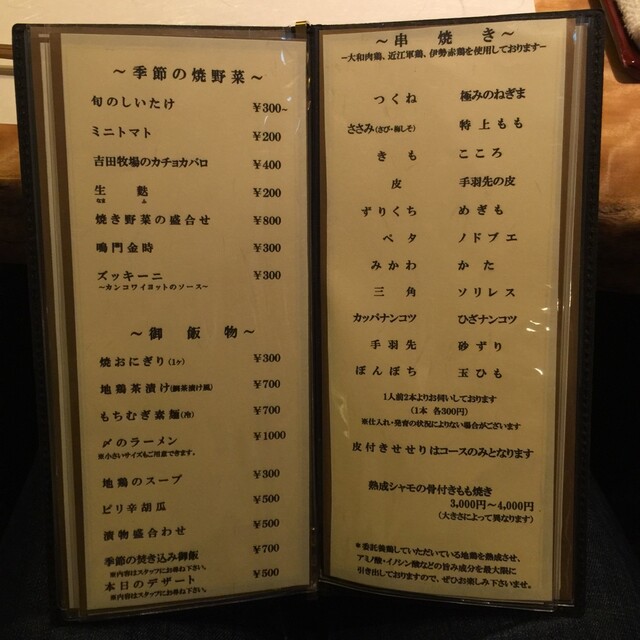 ～季節の焼野菜～
旬のしいたけ ￥300~
ミニトマト ￥200
吉田牧場のカチョカバロ ￥400
生麩 ￥200
なま ふ
焼き野菜の盛合せ ￥800
鳴門金時 ￥300
ズッキーニ ￥300
～カンコワイヨットのソース～
～御飯物～
焼おにぎり(1ヶ) ￥300
地鶏茶漬け(鯛茶漬け風) ￥700
もちむぎ素麺(冷) ￥700
〆のラーメン ￥1000
※小さいサイズもご用意できます。
地鶏のスープ ￥300
ピリ辛胡瓜 ￥500
漬物盛合わせ ￥500
季節の焚き込み御飯 ￥700
※内容はスタッフにお尋ね下さい。
本日のデザート ￥500
※内容はスタッフにお尋ね下さい。
～串焼き～
ー大和肉鶏、近江軍鶏、伊勢赤鶏を使用しておりますー
つくね 極みのねぎま
ささみ(さび・梅しそ) 特上もも
きも こころ
皮 手羽先の皮
ずりくち めぎも
ペタ ノドブエ
みかわ かた
三角 ソリレス
カッパナンコツ ひざナンコツ
手羽先 砂ずり
ぼんぼち 玉ひも
1人前2本よりお伺いしております
(1本 各300円)
※仕入れ・発育の状況によりない場合がございます
皮付きせせりはコースのみとなります
熟成シャモの骨付きもも焼き
3,000円～4,000円
(大きさによって異なります)
＊委託飼育していただいている地鶏を熟成させ、
アミノ酸・イノシン酸などの旨み成分を最大限に
引き出しておりますので、ぜひお楽しみ下さいませ。